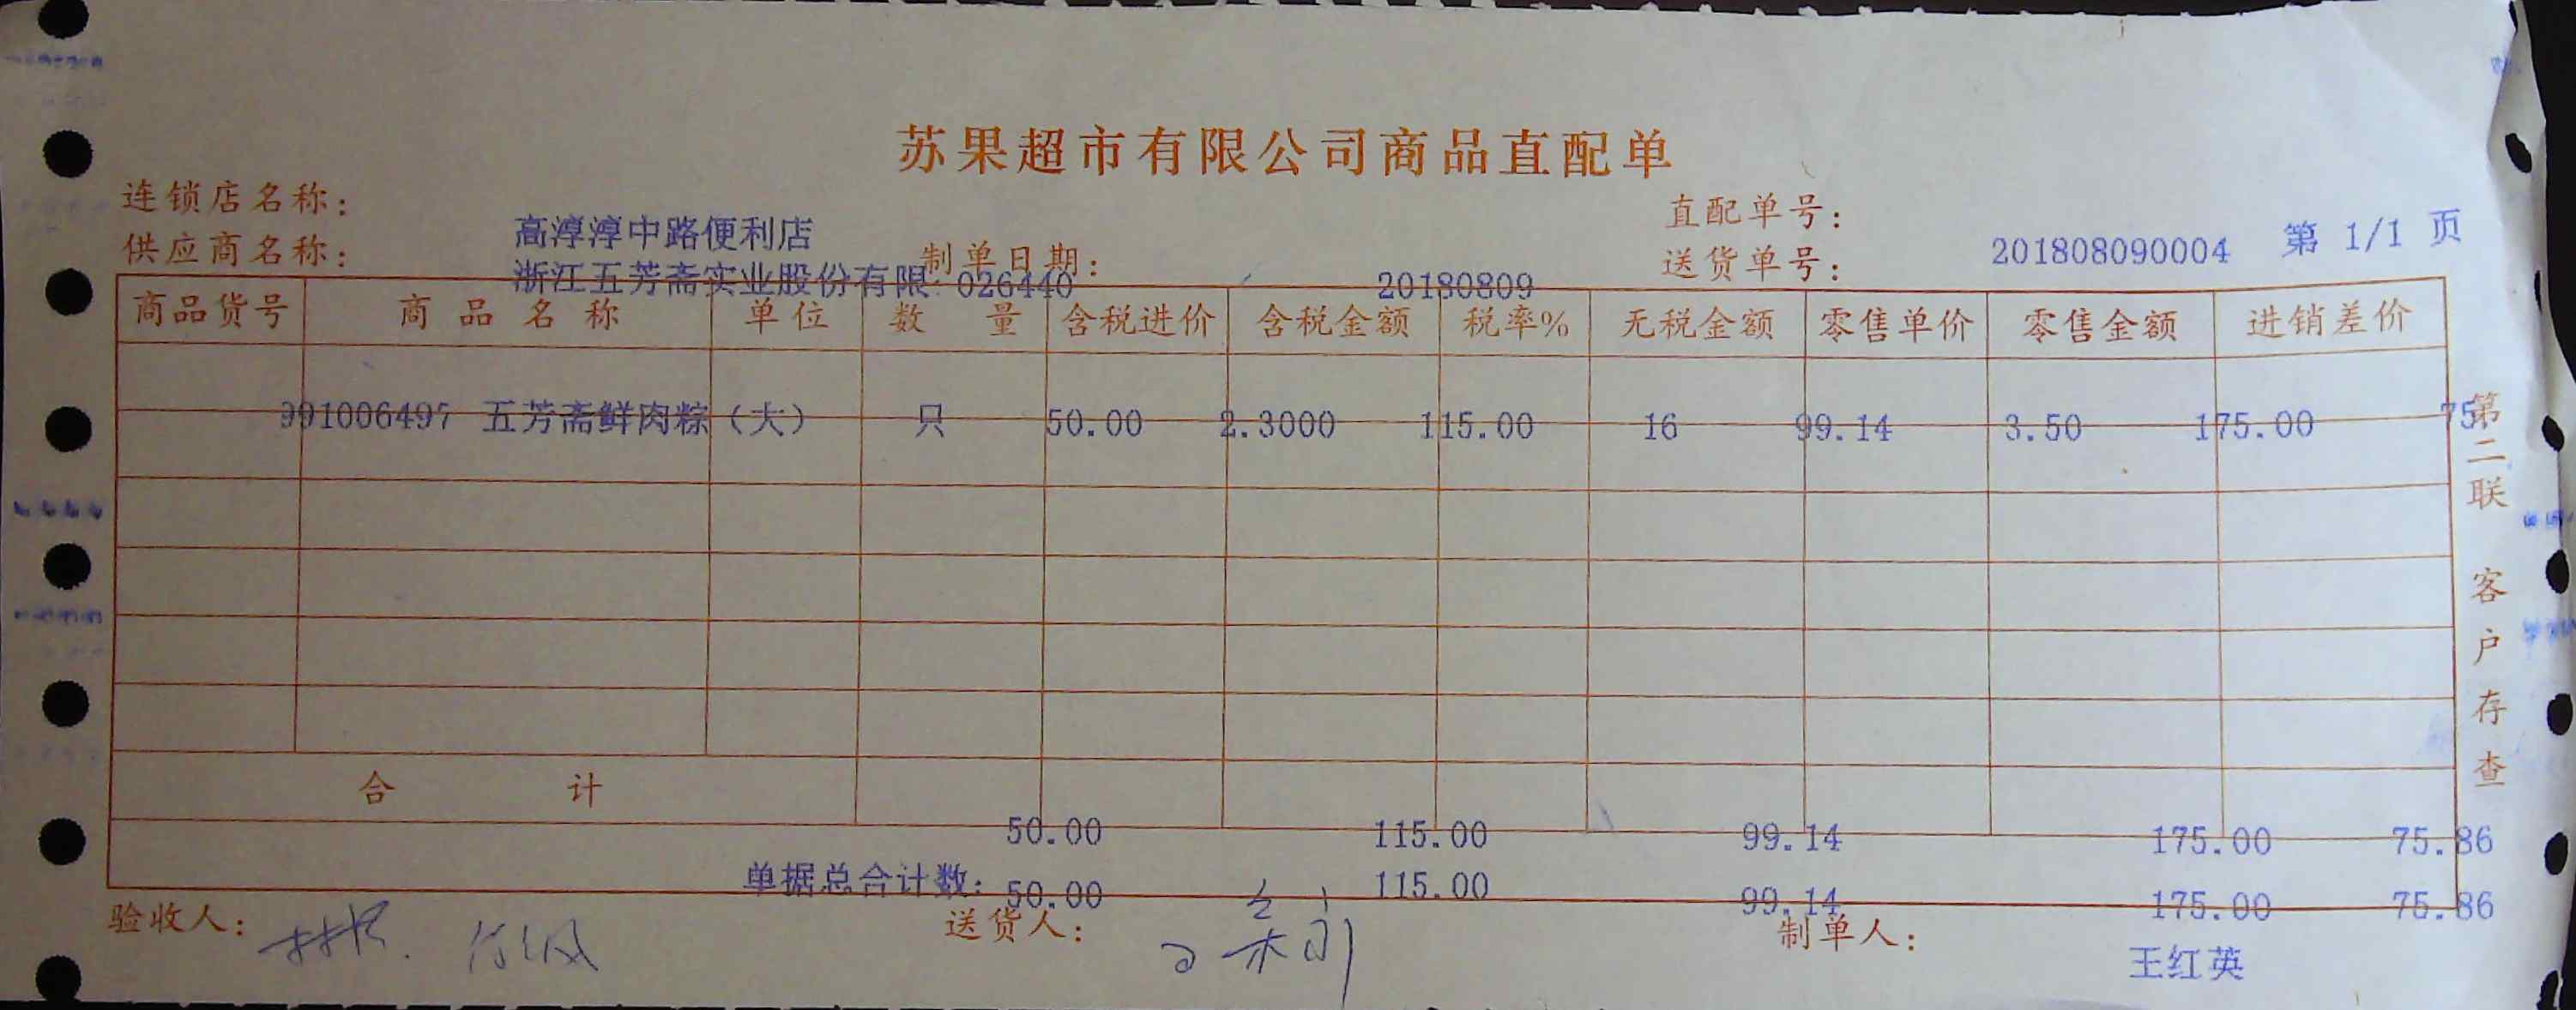 苏果超市有限公司商品直配单
连锁店名称： 高淳淳中路便利店 直配单号： 201808090004 第 1/1 页
供应商名称： 浙江五芳斋实业股份有限 026440 制单日期： 20180809 送货单号：
商品货号 商品名称 单位 数量 含税进价 含税金额 税率% 无税金额 零售单价 零售金额 进销差价
991006497 五芳斋鲜肉粽（大） 只 50.00 2.3000 115.00 16 99.14 3.50 175.00 75
合计 50.00 115.00 99.14 175.00 75.86
单据总合计数： 50.00 115.00 99.14 175.00 75.86
验收人： 送货人： 制单人： 王红英
第二联 客户存查